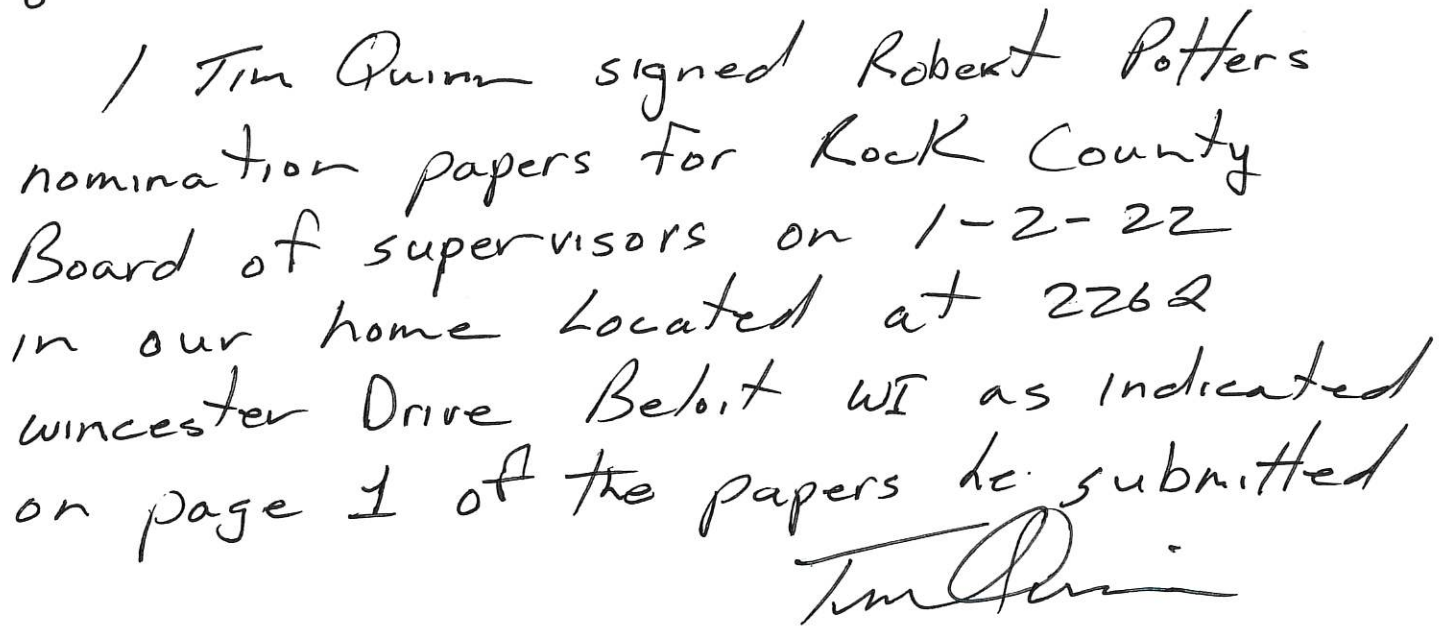 I Tim Quinn signed Robert Potters
nomination papers for Rock County
Board of supervisors on 1-2-22
in our home Located at 2262
wincester Drive Beloit WI as indicated
on page 1 of the papers he submitted
Tim Quinn